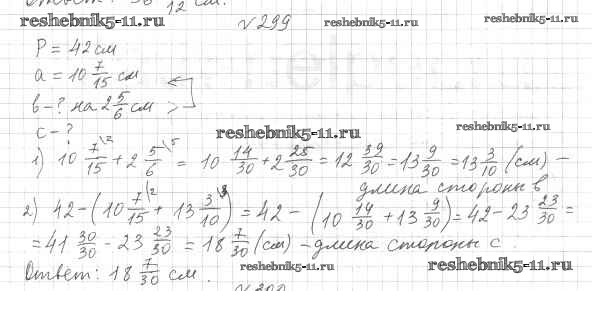 Ответ: 36 /12 см.
reshebnik5-11.ru
№299
reshebnik5-11.ru
reshebnik5-11.ru
P = 42 см
a = 10 7/15 см
в - ? на 2 5/6 см >
с - ?
reshebnik5-11.ru
reshebnik5-11.ru
1) 10 7/15 \2 + 2 5/6 \5 = 10 14/30 + 2 25/30 = 12 39/30 = 13 9/30 = 13 3/10 (см) –
длина стороны в
2) 42 - (10 7/15 \2 + 13 3/10 \3) = 42 - (10 14/30 + 13 9/30) = 42 - 23 23/30 =
= 41 30/30 - 23 23/30 = 18 7/30 (см) – длина стороны с.
Ответ: 18 7/30 см.
reshebnik5-11.ru
reshebnik5-11.ru